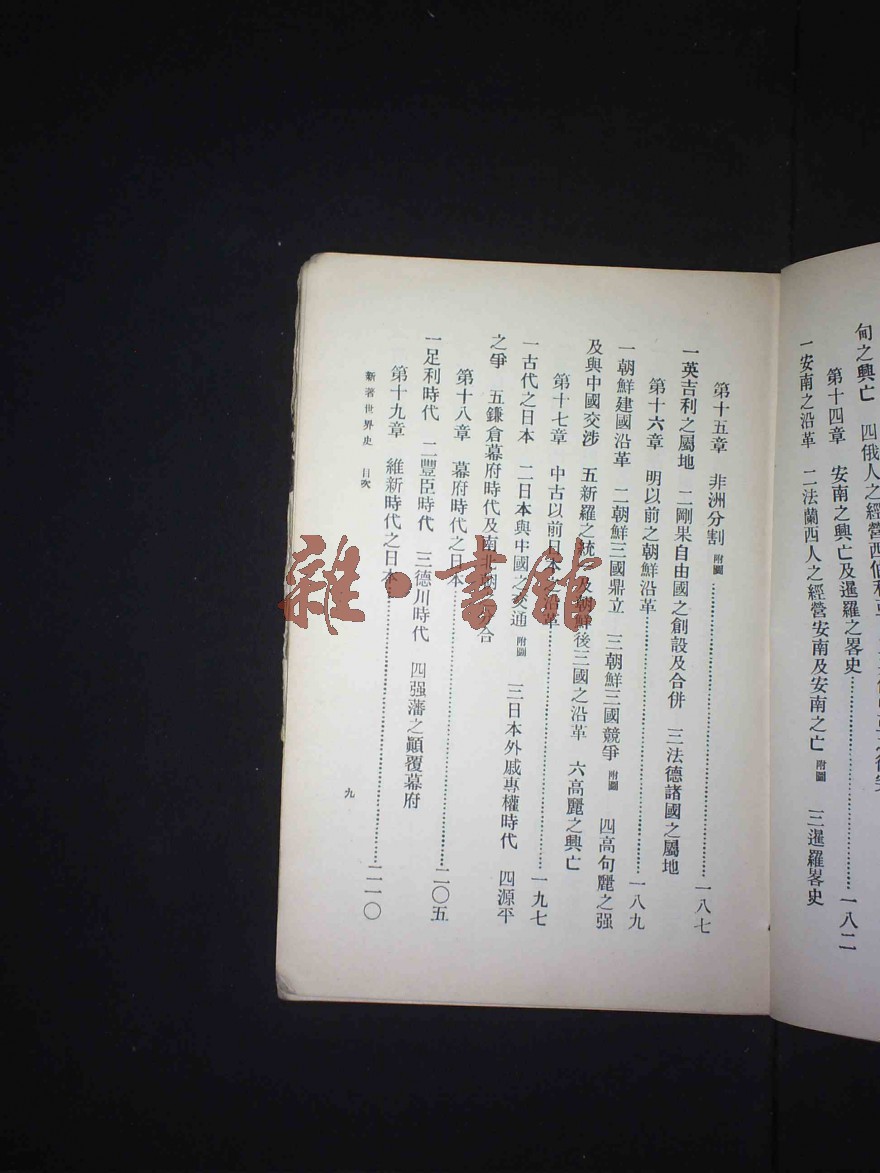 甸之興亡　四俄人之經營西
第十四章　安南之興亡及暹羅之畧史……一八二
一安南之沿革　二法蘭西人之經營安南及安南之亡附圖　三暹羅畧史
第十五章　非洲分割附圖……一八七
一英吉利之屬地　二剛果自由國之創設及合併　三法德諸國之屬地
第十六章　明以前之朝鮮沿革……一八九
一朝鮮建國沿革　二朝鮮三國鼎立　三朝鮮三國競爭附圖　四高句麗之强
及與中國交涉　五新羅之統一及朝鮮後三國之沿革　六高麗之興亡
第十七章　中古以前日本之沿革……一九七
一古代之日本　二日本與中國之交通附圖　三日本外戚專權時代　四源平
之爭　五鎌倉幕府時代及南北朝之分合
第十八章　幕府時代之日本……二〇五
一足利時代　二豐臣時代　三德川時代　四强藩之顚覆幕府
第十九章　維新時代之日本……二一〇
新著世界史　目次
九
雜·書館